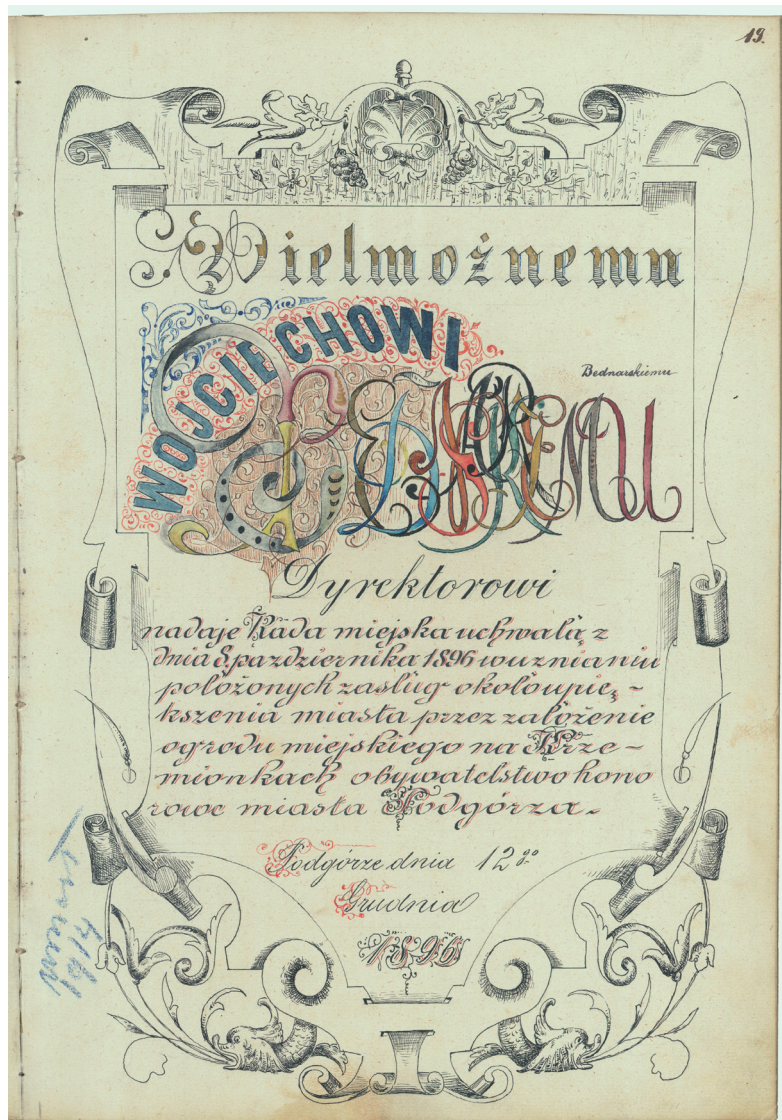 19.
Wielmożnemu
WOJCIECHOWI
Bednarskiemu
BEDNARSKIEMU
Dyrektorowi
nadaje Rada miejska uchwałą z
dnia 8 pazdziernika 1896 w uznaniu
położonych zasług około upię-
kszenia miasta przez założenie
ogrodu miejskiego na Krze-
mionkach obywatelstwo hono
rowe miasta Podgórza.
Podgórze dnia 12go
Grudnia
1896